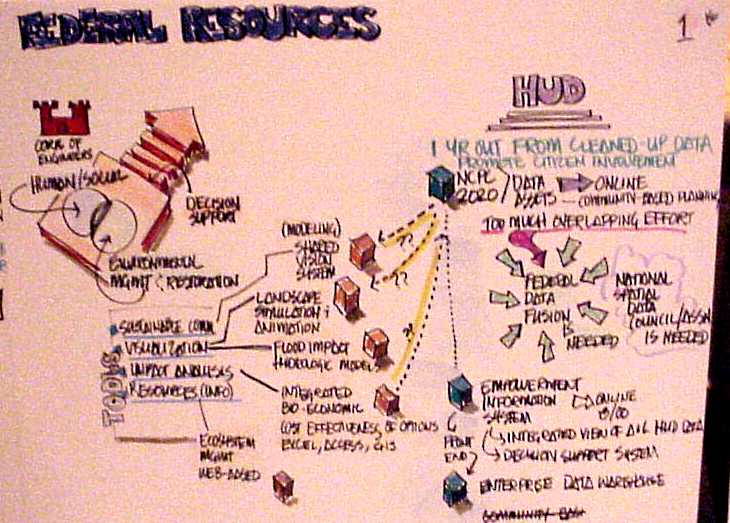 FEDERAL RESOURCES
1
CORP OF
ENGINEERS
HUMAN/SOCIAL
DECISION
SUPPORT
ENVIRONMENTAL
MGMT & RESTORATION
TOOLS
SUSTAINABLE COMM
VISUALIZATION
IMPACT ANALYSES
RESOURCES (INFO)
(MODELING)
SHARED
VISION
SYSTEM
LANDSCAPE
SIMULATION &
ANIMATION
FLOOD IMPACT
HYDROLOGIC MODELS
INTEGRATED
BIO-ECONOMIC
COST EFFECTIVENESS OF OPTIONS
EXCEL, ACCESS,
ECOSYSTEM
MGMT
WEB-BASED
??
??
?
HUD
1 YR OUT FROM CLEANED-UP DATA
PROMOTE CITIZEN INVOLVEMENT
2020
DATA
ASSETS
ONLINE
COMMUNITY-BASED PLANNING
TOO MUCH OVERLAPPING EFFORT
FEDERAL
DATA
FUSION
NEEDED
NATIONAL
SPATIAL
DATA
COUNCIL/ASSN
IS NEEDED
EMPOWERMENT
INFORMATION
SYSTEM
ONLINE
FRONT
END
INTEGRATED VIEW OF ALL HUD DATA
DECISION SUPPORT SYSTEM
ENTERPRISE DATA WAREHOUSE